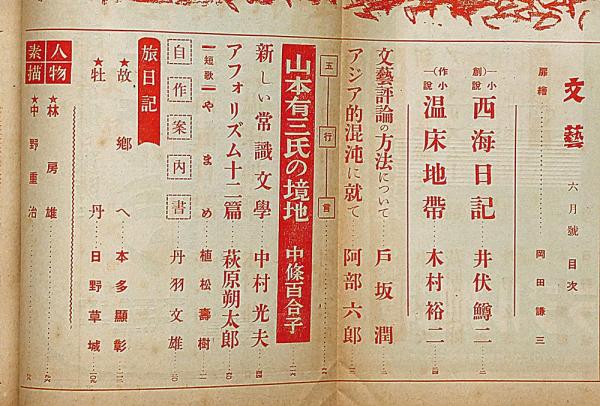 文藝 六月號目次
扉繪 岡田謙三
(創作小説) 西海日記 井伏鱒二
(創作小説) 温床地帶 木村裕二
文藝評論の方法について 戶坂潤
アジア的混沌に就て 阿部六郎
五行言
山本有三氏の境地 中條百合子
新しい常識文學 中村光夫
アフォリズム十二篇 萩原朔太郎
―短歌―やまめ 植松壽樹
自作案内書 丹羽文雄
旅日記
★故鄉へ 本多顯彰
★牡丹 日野草城
人物素描
★林房雄
★中野重治